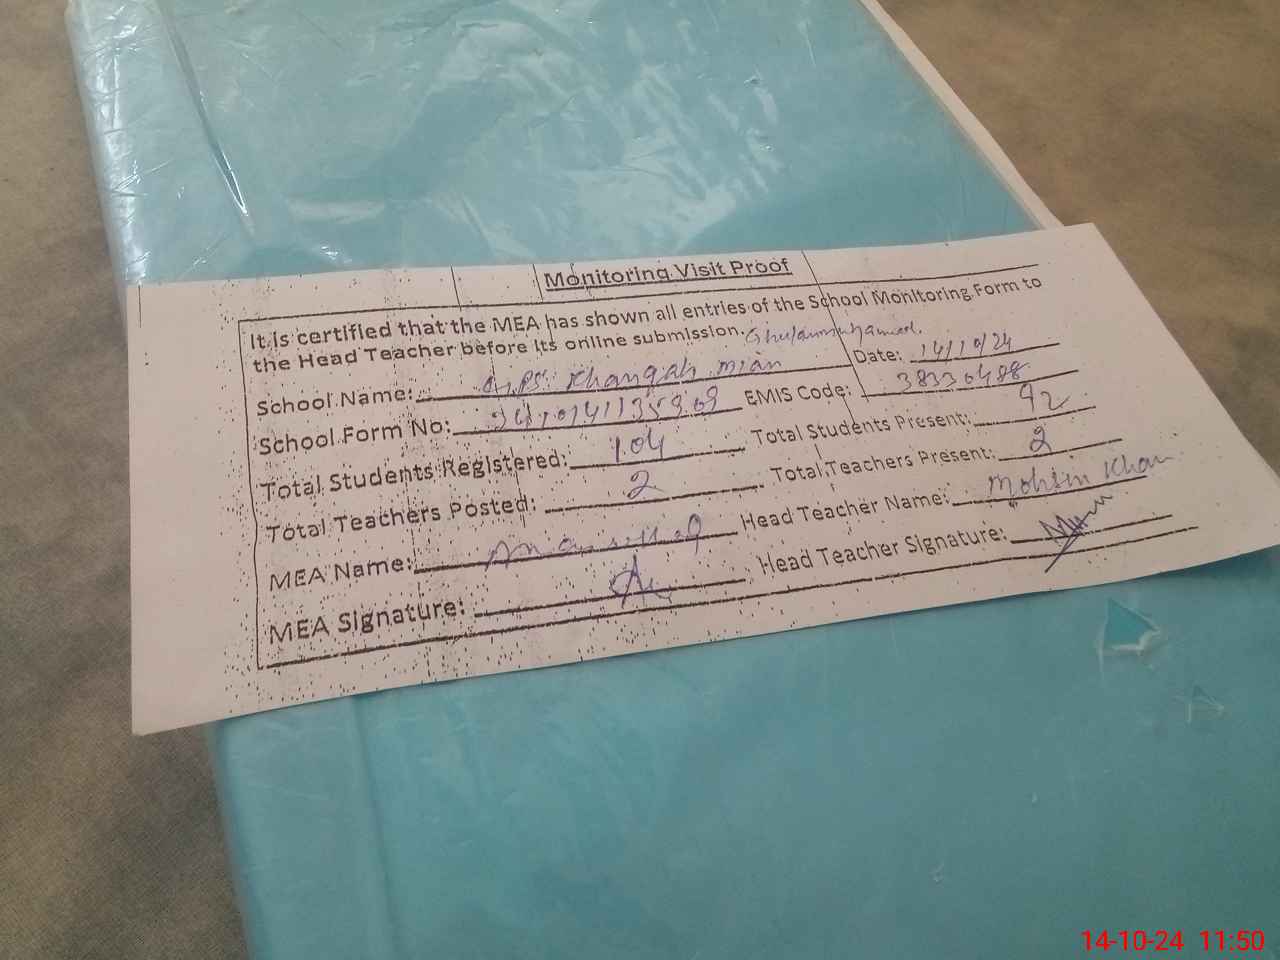 Monitoring Visit Proof
It is certified that the MEA has shown all entries of the School Monitoring Form to
the Head Teacher before its online submission. Ghulam Muhammad.
School Name: G.PS. Khangah Mian Date: 14/10/24
School Form No: EMIS Code: 38330488
Total Students Registered: 104 Total Students Present: 92
Total Teachers Posted: 2 Total Teachers Present: 2
MEA Name: Head Teacher Name: Mohsin Khan
MEA Signature: Head Teacher Signature:
14-10-24 11:50